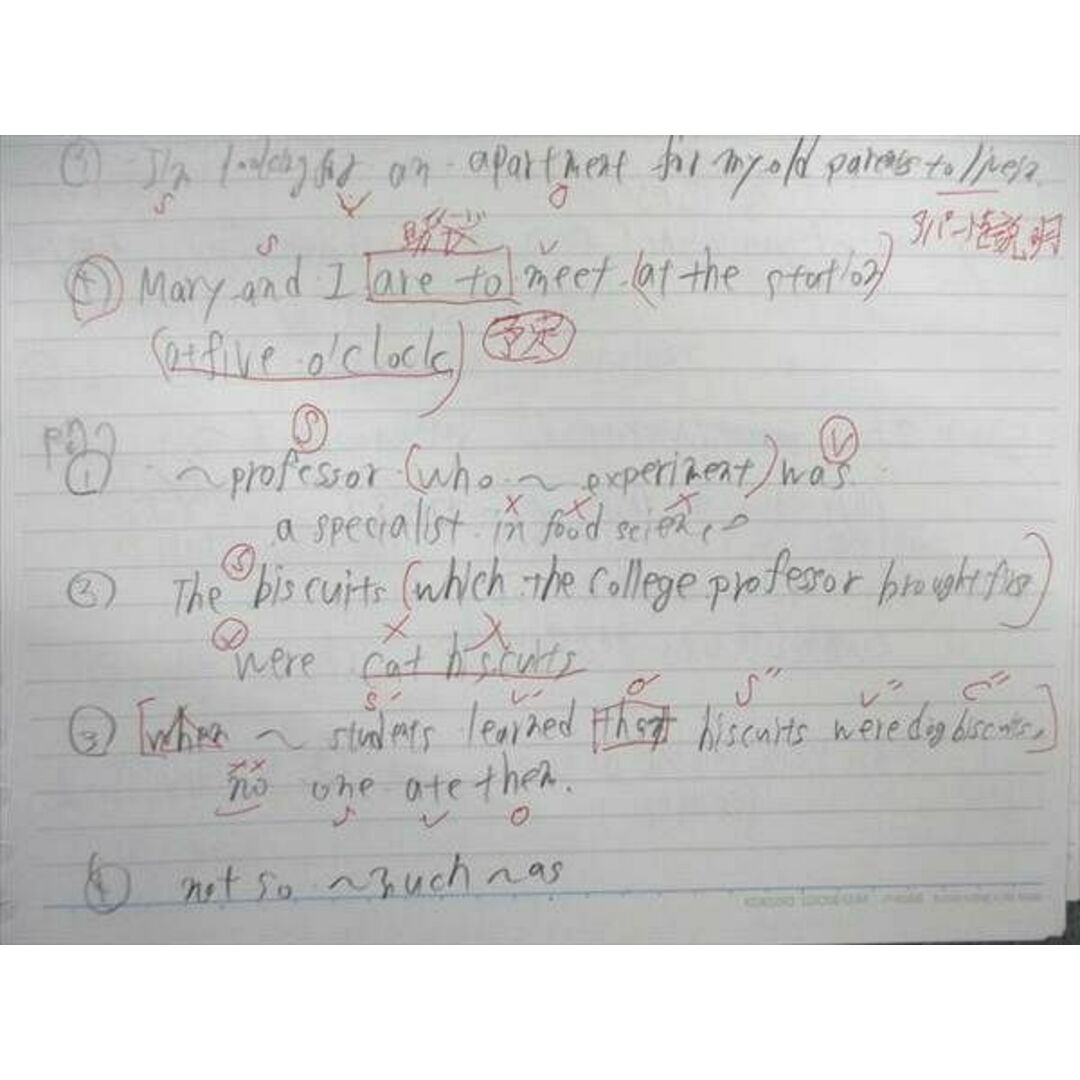 I'm looking for an apartment for my old parents to live in.
S V O
アパートを説明
S 助 V
④ Mary and I are to meet (at the station)
(at five o'clock) 予定
S V
① ~professor (who ~ experiment) was
a specialist in food science
S
② The biscuits (which the college professor brought first)
V
were cat biscuits
S' V' O' S" V" C"
③ [when ~ students learned that biscuits were dog biscuits,]
no one ate them.
S V O
④ not so ~ much ~ as